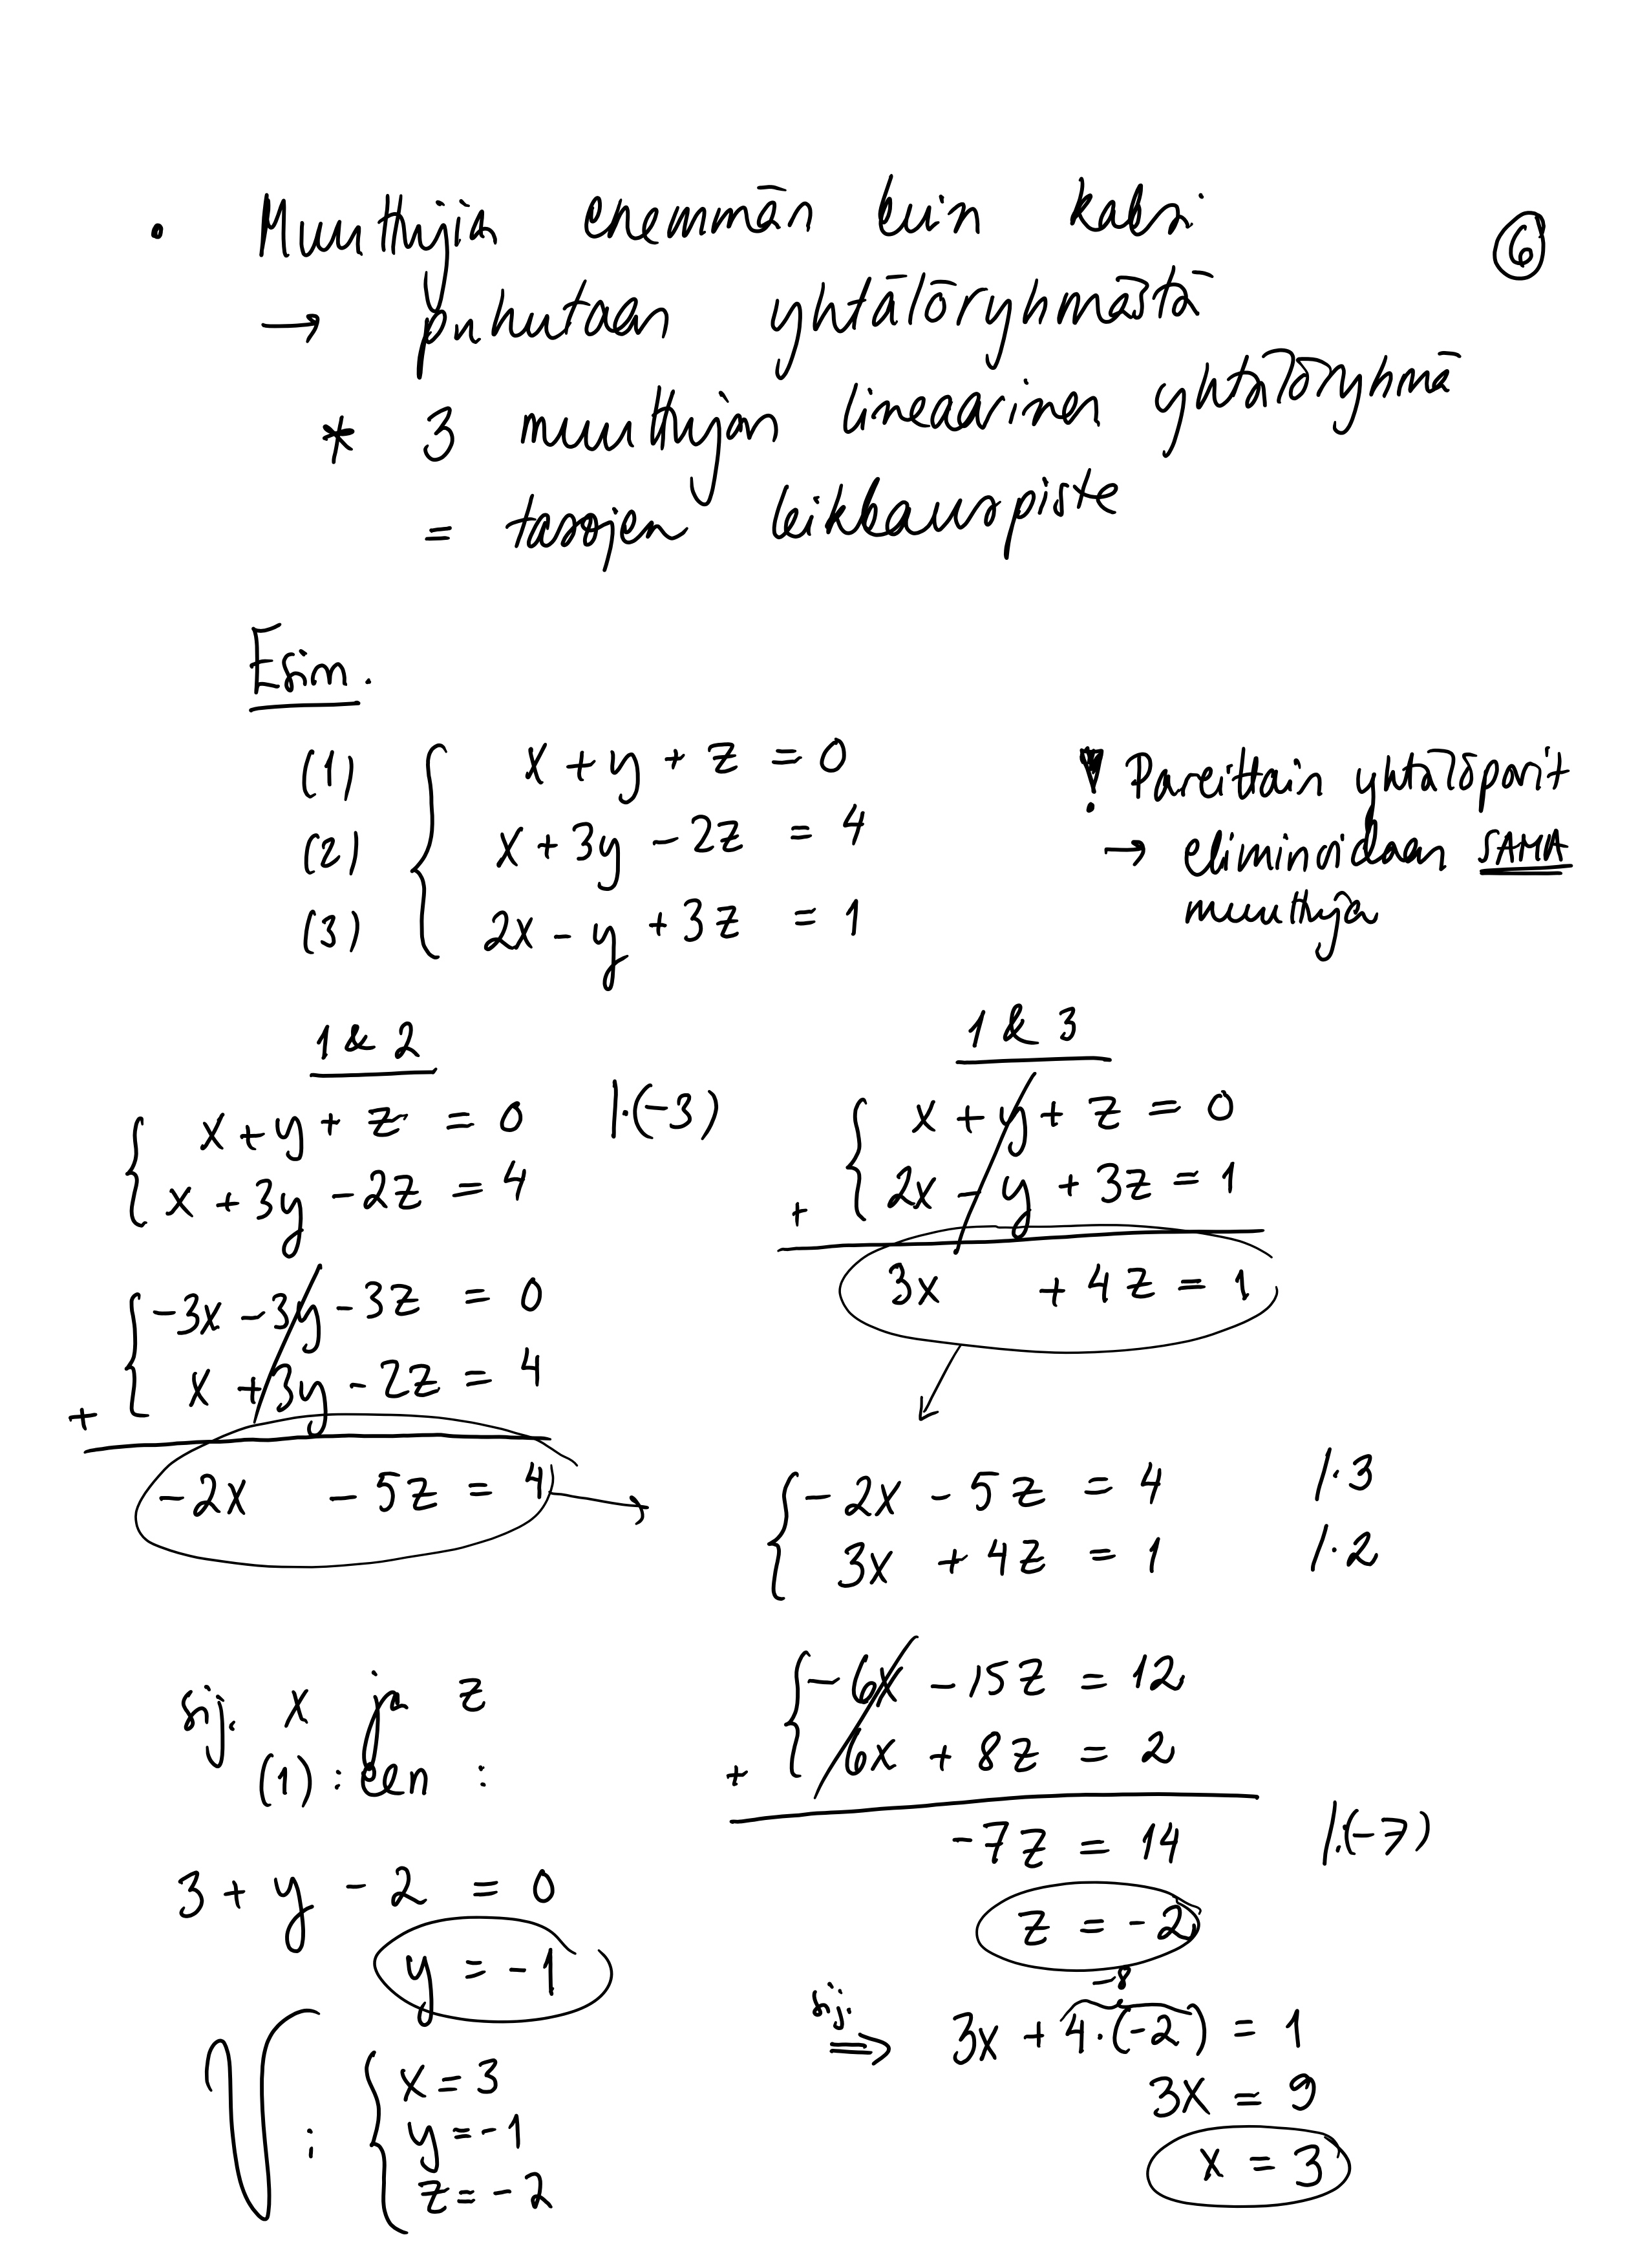 • Muuttujia enemmän kuin kaksi
⑥
→ puhutaan yhtälöryhmästä
* 3 muuttujan lineaarinen yhtälöryhmä
= tasojen leikkauspiste
Esim.
(1) { x + y + z = 0
(2) x + 3y - 2z = 4
(3) 2x - y + 3z = 1
! Pareittain yhtälöparit
→ eliminoidaan SAMA
muuttuja
1 & 2
{ x + y + z = 0 |·(-3)
x + 3y - 2z = 4
{ -3x - 3y - 3z = 0
+ x + 3y - 2z = 4
-2x - 5z = 4 →
1 & 3
{ x + y + z = 0
+ 2x - y + 3z = 1
3x + 4z = 1
{ -2x - 5z = 4 |·3
3x + 4z = 1 |·2
{ -6x - 15z = 12
+ 6x + 8z = 2
-7z = 14 |:(-7)
z = -2
-8
sij. ⇒ 3x + 4·(-2) = 1
3x = 9
x = 3
sij. x ja z
(1):een :
3 + y - 2 = 0
y = -1
V: { x = 3
y = -1
z = -2